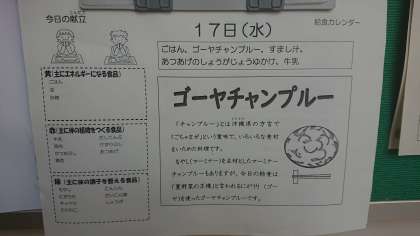 今日の献立
17日(水)
給食カレンダー
ごはん、ゴーヤチャンプルー、すまし汁、
あつあげのしょうがじょうゆかけ、牛乳
黄(主にエネルギーになる食品)
ごはん
ゴーヤチャンプルー
「チャンプルー」とは沖縄県の方言で
「ごちゃまぜ」という意味で、いろいろな食材
をいためた料理です。
もやし(マーミナー)を主材としたマーミナー
チャンプルーもありますが、今日の給食は
「夏野菜の王様」と言われるにがうり(ゴー
ヤ)を使ったゴーヤチャンプルーです。
赤(主に体の組織をつくる食品)
牛乳
緑(主に体の調子を整える食品)
もやし
にんじん
キャベツ
しょうが